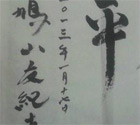 平
二〇一三年一月十七日
鳩山友紀夫